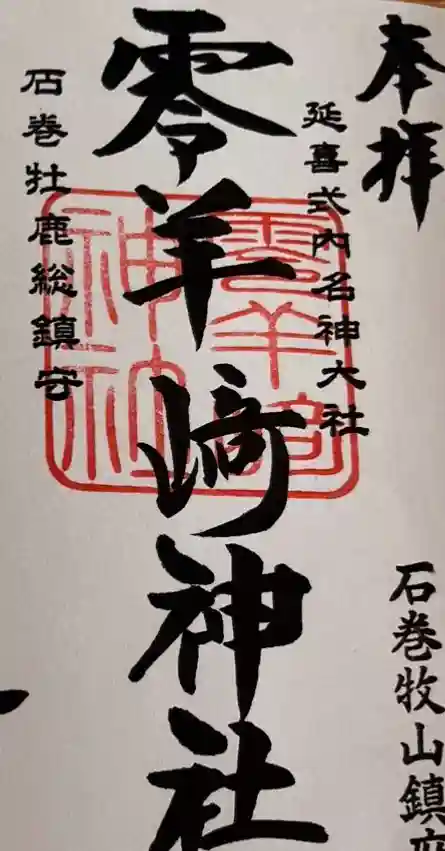 奉拝
石巻牧山鎮座
延喜式内名神大社
零羊崎神社
石巻牡鹿総鎮守
零羊崎
神社